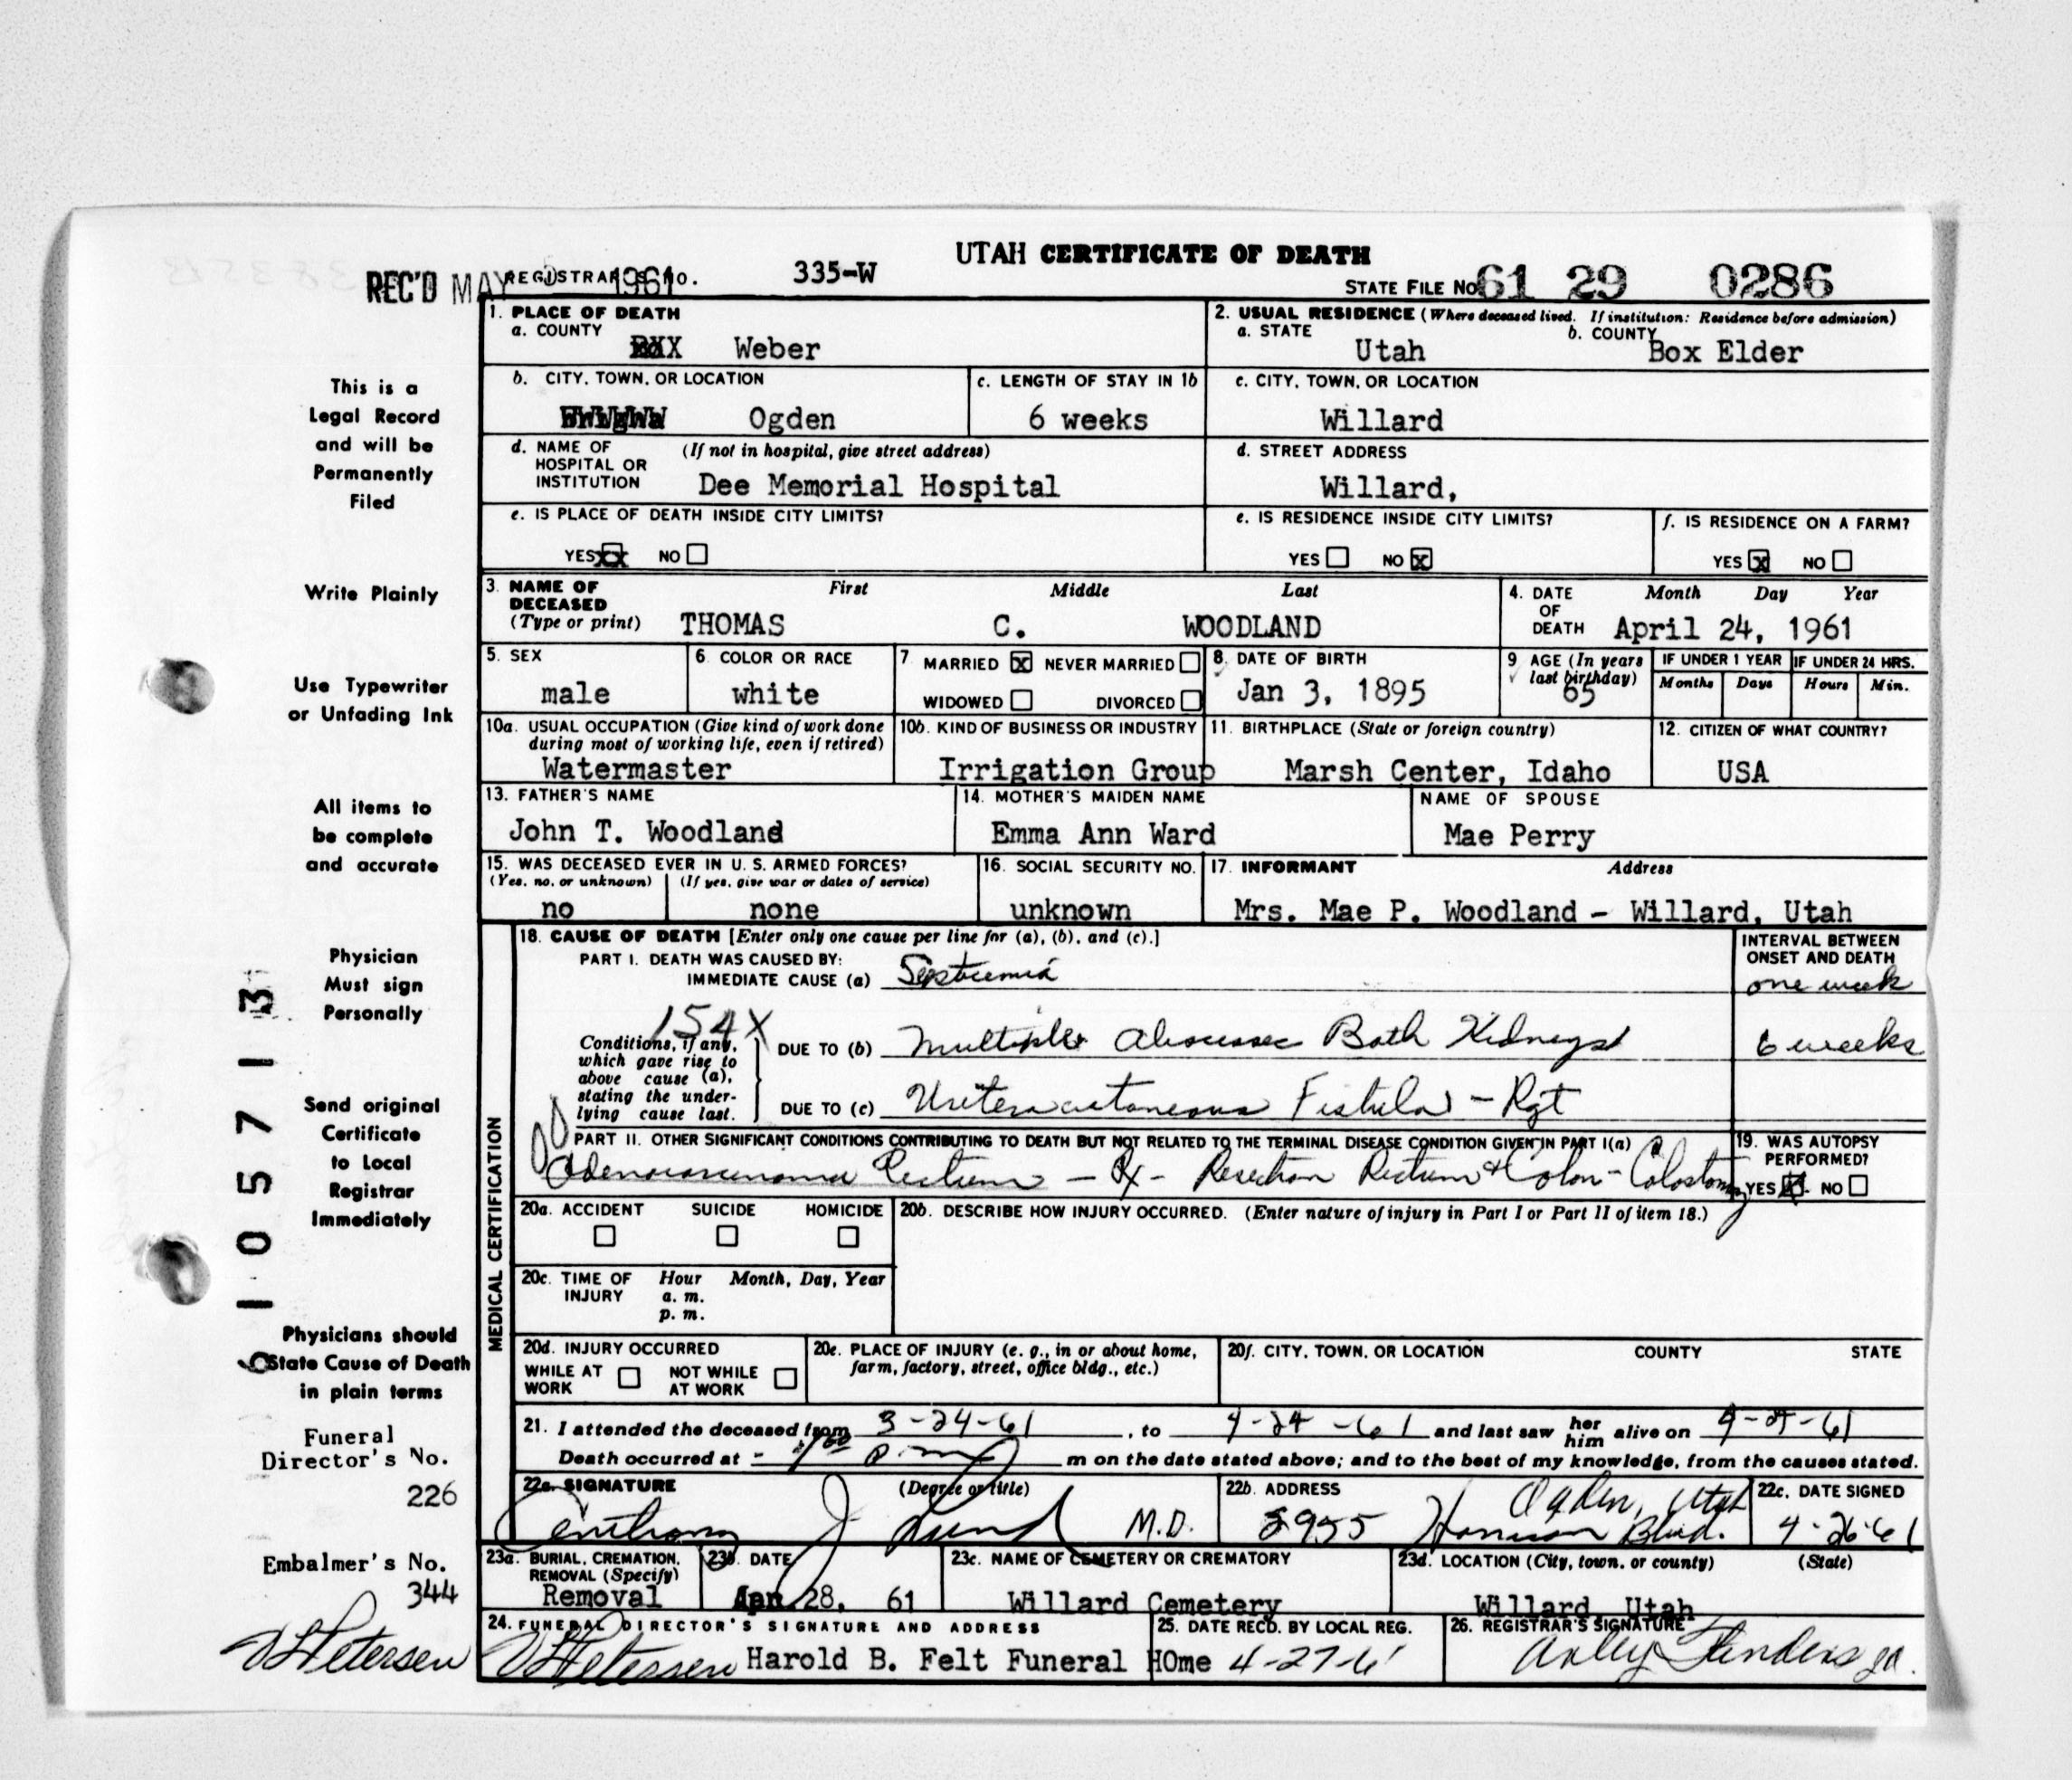 UTAH CERTIFICATE OF DEATH
REC'D MAY 1961 REGISTRAR'S NO. 335-W
STATE FILE NO. 61 29 0286
1. PLACE OF DEATH
a. COUNTY
Weber
2. USUAL RESIDENCE (Where deceased lived. If institution: Residence before admission)
a. STATE b. COUNTY
Utah Box Elder
b. CITY, TOWN, OR LOCATION
Ogden
c. LENGTH OF STAY IN 1b
6 weeks
c. CITY, TOWN, OR LOCATION
Willard
d. NAME OF (If not in hospital, give street address)
HOSPITAL OR
INSTITUTION Dee Memorial Hospital
d. STREET ADDRESS
Willard,
e. IS PLACE OF DEATH INSIDE CITY LIMITS?
YES XX NO
e. IS RESIDENCE INSIDE CITY LIMITS?
YES NO X
f. IS RESIDENCE ON A FARM?
YES X NO
3. NAME OF DECEASED First Middle Last
(Type or print) THOMAS C. WOODLAND
4. DATE OF DEATH Month Day Year
April 24, 1961
5. SEX
male
6. COLOR OR RACE
white
7 MARRIED X NEVER MARRIED
WIDOWED DIVORCED
8. DATE OF BIRTH
Jan 3, 1895
9 AGE (In years
last birthday)
65
IF UNDER 1 YEAR IF UNDER 24 HRS.
Months Days Hours Min.
10a. USUAL OCCUPATION (Give kind of work done
during most of working life, even if retired)
Watermaster
10b. KIND OF BUSINESS OR INDUSTRY
Irrigation Group
11. BIRTHPLACE (State or foreign country)
Marsh Center, Idaho
12. CITIZEN OF WHAT COUNTRY?
USA
13. FATHER'S NAME
John T. Woodland
14. MOTHER'S MAIDEN NAME
Emma Ann Ward
NAME OF SPOUSE
Mae Perry
15. WAS DECEASED EVER IN U. S. ARMED FORCES?
(Yes, no, or unknown) (If yes, give war or dates of service)
no none
16. SOCIAL SECURITY NO.
unknown
17. INFORMANT Address
Mrs. Mae P. Woodland - Willard, Utah
MEDICAL CERTIFICATION
18. CAUSE OF DEATH [Enter only one cause per line for (a), (b), and (c).]
INTERVAL BETWEEN
ONSET AND DEATH
PART I. DEATH WAS CAUSED BY:
IMMEDIATE CAUSE (a) Septicemia one week
154X
Conditions, if any,
which gave rise to
above cause (a),
stating the under-
lying cause last.
DUE TO (b) Multiple Abscesses Both Kidneys 6 weeks
DUE TO (c) Ureterocutaneous Fistula - Rgt
PART II. OTHER SIGNIFICANT CONDITIONS CONTRIBUTING TO DEATH BUT NOT RELATED TO THE TERMINAL DISEASE CONDITION GIVEN IN PART I(a)
Adenocarcinoma Rectum - Rx - Resection Rectum & Colon - Colostomy
19. WAS AUTOPSY
PERFORMED?
YES X NO
20a. ACCIDENT SUICIDE HOMICIDE
20b. DESCRIBE HOW INJURY OCCURRED. (Enter nature of injury in Part I or Part II of item 18.)
20c. TIME OF INJURY Hour Month, Day, Year
a. m.
p. m.
20d. INJURY OCCURRED
WHILE AT WORK NOT WHILE AT WORK
20e. PLACE OF INJURY (e. g., in or about home,
farm, factory, street, office bldg., etc.)
20f. CITY, TOWN, OR LOCATION COUNTY STATE
21. I attended the deceased from 3-24-61, to 4-24-61 and last saw her him alive on 4-24-61
Death occurred at pm m on the date stated above; and to the best of my knowledge, from the causes stated.
22a. SIGNATURE (Degree or title)
J Lund M.D.
22b. ADDRESS
Ogden, Utah
3955 Harrison Blvd.
22c. DATE SIGNED
4-26-61
23a. BURIAL, CREMATION,
REMOVAL (Specify)
Removal
23b. DATE
Apr. 28, 61
23c. NAME OF CEMETERY OR CREMATORY
Willard Cemetery
23d. LOCATION (City, town, or county) (State)
Willard, Utah
24. FUNERAL DIRECTOR'S SIGNATURE AND ADDRESS
Petersen Harold B. Felt Funeral HOme
25. DATE RECD. BY LOCAL REG.
4-27-61
26. REGISTRAR'S SIGNATURE
This is a
Legal Record
and will be
Permanently
Filed
Write Plainly
Use Typewriter
or Unfading Ink
All items to
be complete
and accurate
Physician
Must sign
Personally
Send original
Certificate
to Local
Registrar
Immediately
Physicians should
State Cause of Death
in plain terms
Funeral
Director's No.
226
Embalmer's No.
344
Petersen